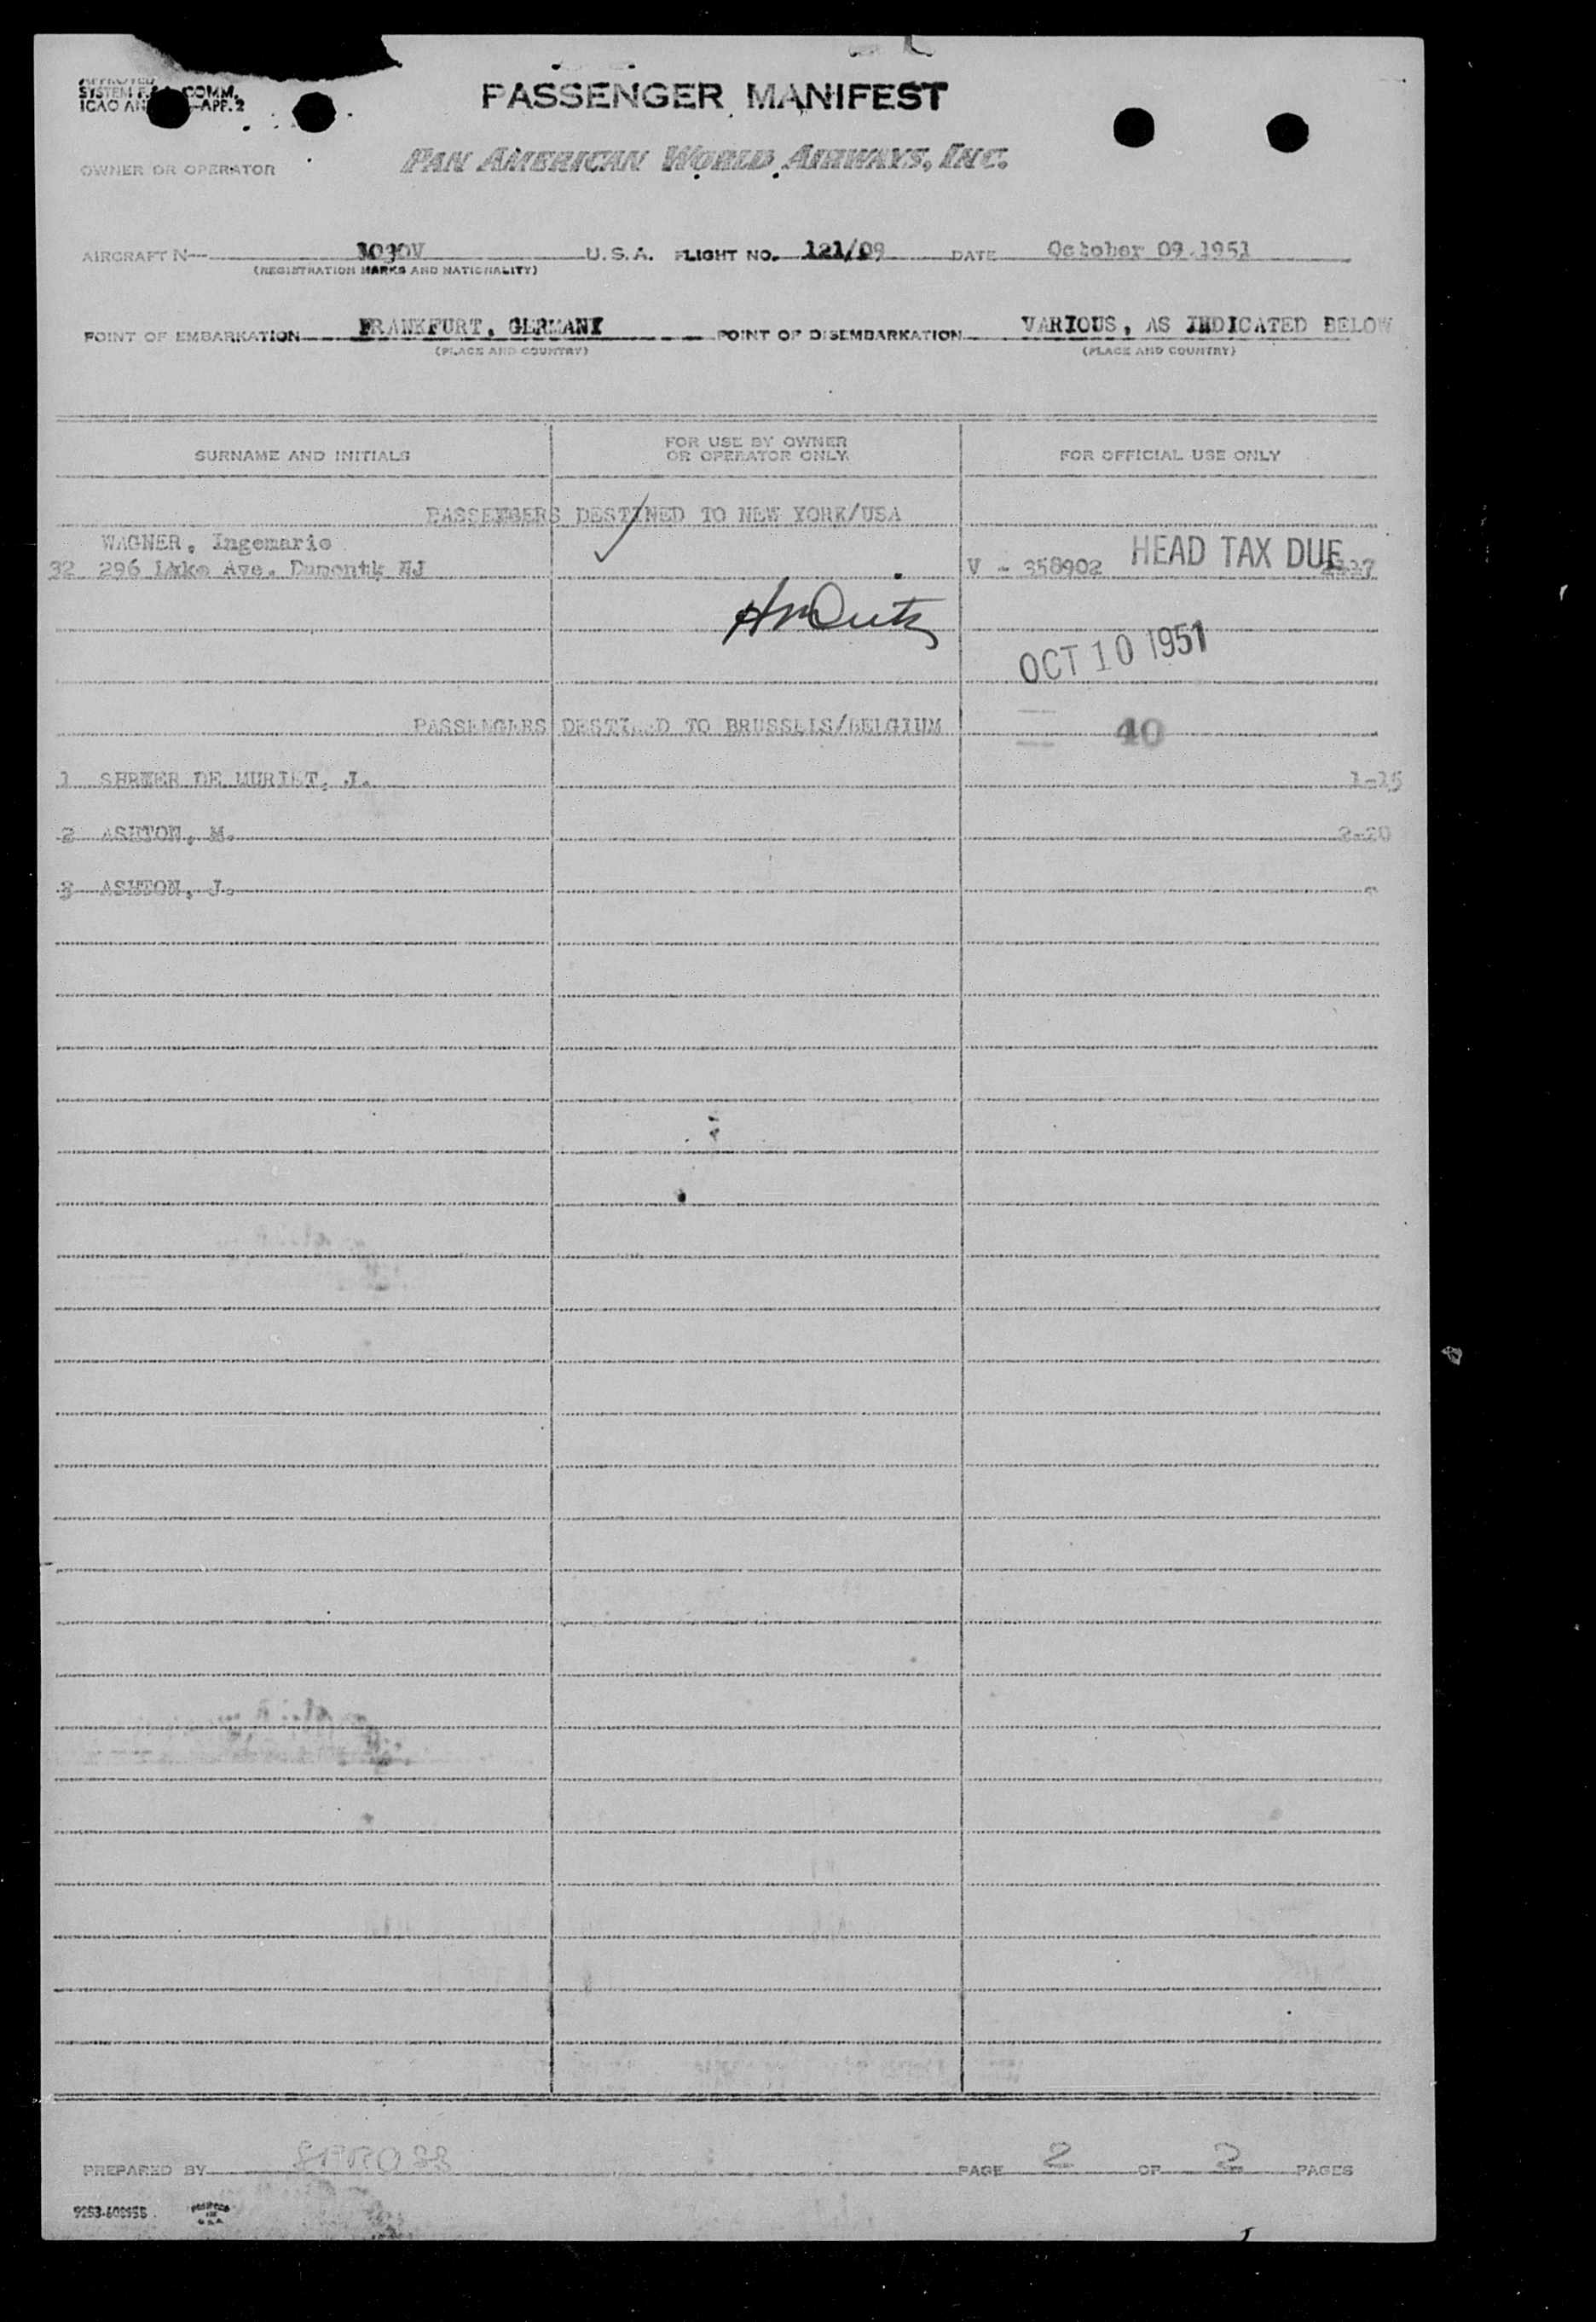 APPROVED
SYSTEM COMM.
ICAO AN -APP. 2
PASSENGER MANIFEST
OWNER OR OPERATOR PAN AMERICAN WORLD AIRWAYS, INC.
AIRCRAFT N- 1030V U. S. A. FLIGHT NO. 121/09 DATE October 09.1951
(REGISTRATION MARKS AND NATIONALITY)
POINT OF EMBARKATION FRANKFURT, GERMANY POINT OF DISEMBARKATION VARIOUS, AS INDICATED BELOW
(PLACE AND COUNTRY) (PLACE AND COUNTRY)
SURNAME AND INITIALS FOR USE BY OWNER OR OPERATOR ONLY. FOR OFFICIAL USE ONLY
PASSENGERS DESTINED TO NEW YORK/USA
WAGNER, Ingemarie
32 296 Lake Ave. NJ V - 358902 HEAD TAX DUE
OCT 10 1951
PASSENGERS DESTINED TO BRUSSELS/BELGIUM 40
1 DE MURIET, J. 1-15
2 ASHTON, M. 2-20
3 ASHTON, J. -
PREPARED BY PAGE 2 OF 2 PAGES